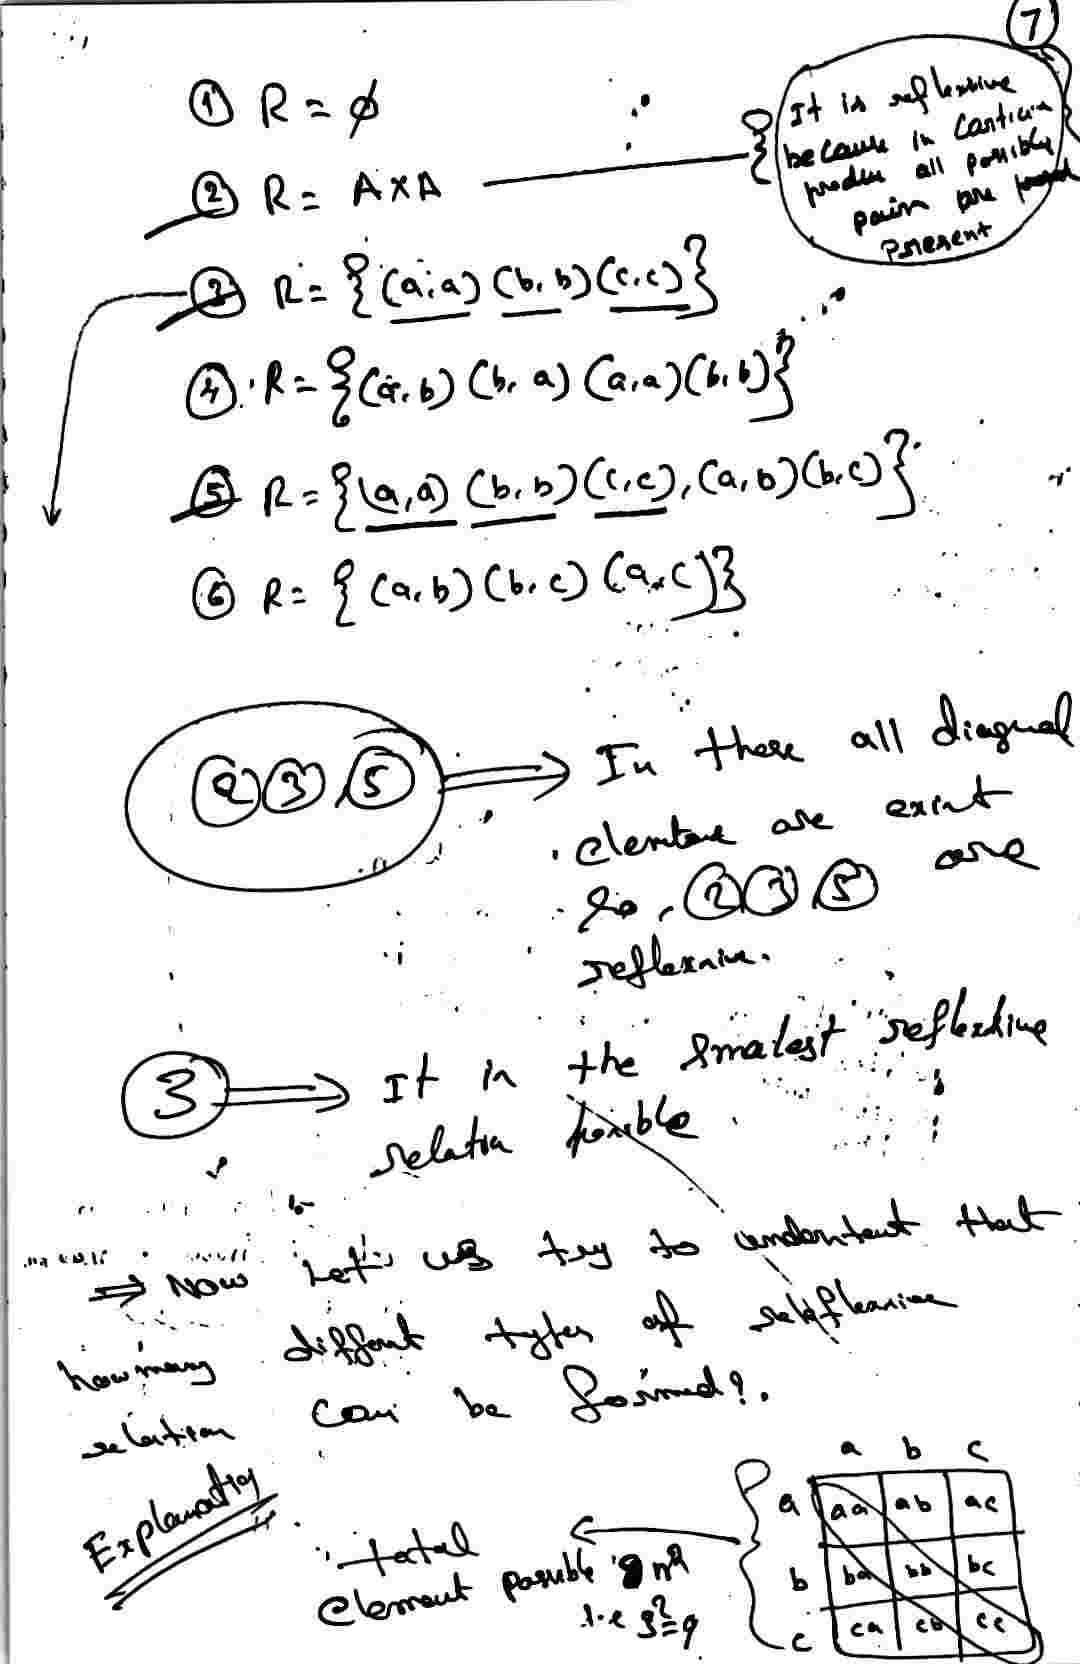 7
① R = ϕ
② R = A×A
It is reflextive
because in Cartician
produ all possible
pairs are
Present
③ R = { (a,a) (b,b) (c,c) }
④ R = { (a,b) (b,a) (a,a) (b,b) }
⑤ R = { (a,a) (b,b) (c,c), (a,b) (b,c) }
⑥ R = { (a,b) (b,c) (a,c) }
② ③, ⑤ ⇒ In these all diagnal
are exist
So, ② ③ ⑤ are
reflexsive.
③ ⇒ It is the Smalest reflextive
relation possible
⇒ Now Let's us try to understant that
how many diffent types of
relation can be formed?.
Explanation
total
element possible n²
i.e 3²=9
a b c
a aa ab ac
b ba bb bc
c ca cb cc